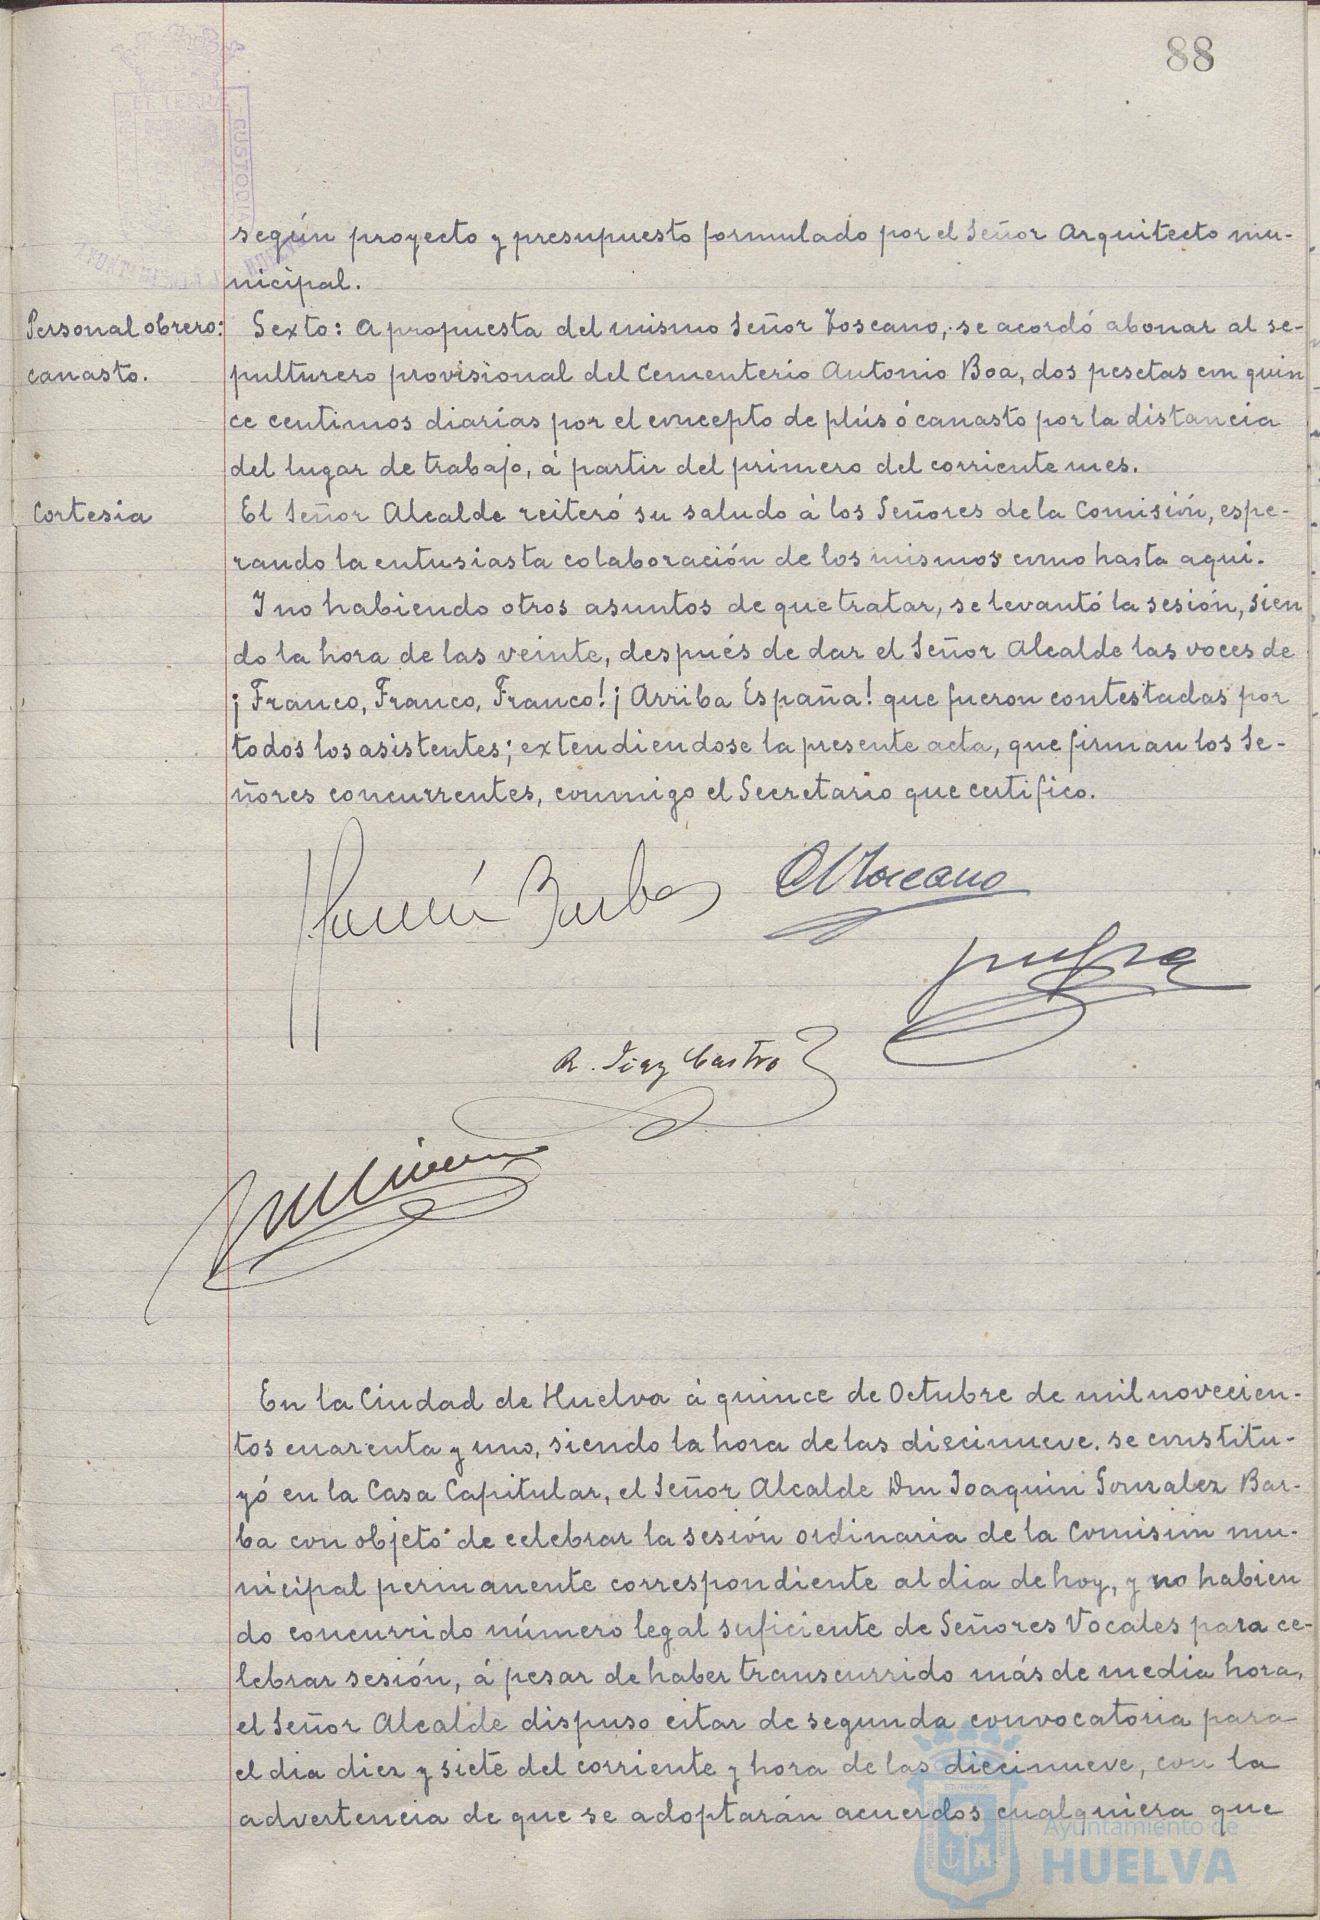 88
según proyecto y presupuesto formulado por el Señor Arquitecto mu-
nicipal.
Personal obrero: Sexto: A propuesta del mismo Señor Toscano, se acordó abonar al se-
canasto. pulturero provisional del Cementerio Antonio Boa, dos pesetas con quin
ce centimos diarias por el concepto de plús ó canasto por la distancia
del lugar de trabajo, á partir del primero del corriente mes.
Cortesia El Señor Alcalde reiteró su saludo á los Señores de la Comisión, espe-
rando la entusiasta colaboración de los mismos como hasta aqui.
Y no habiendo otros asuntos de que tratar, se levantó la sesión, sien
do la hora de las veinte, después de dar el Señor Alcalde las voces de
¡Franco, Franco, Franco! ¡Arriba España! que fueron contestadas por
todos los asistentes; extendiendose la presente acta, que firman los Se-
ñores concurrentes, conmigo el Secretario que certifico.
Barba
Toscano
R. Diaz Castro
En la Ciudad de Huelva á quince de Octubre de mil novecien-
tos cuarenta y uno, siendo la hora de las diecinueve. se constitu-
yó en la Casa Capitular, el Señor Alcalde Don Joaquin Gonzalez Bar-
ba con objeto de celebrar la sesión ordinaria de la Comisión mu-
nicipal permanente correspondiente al dia de hoy, y no habien
do concurrido número legal suficiente de Señores Vocales para ce-
lebrar sesión, á pesar de haber transcurrido más de media hora,
el Señor Alcalde dispuso citar de segunda convocatoria para
el dia diez y siete del corriente y hora de las diecinueve, con la
advertencia de que se adoptarán acuerdos cualquiera que
Ayuntamiento de
HUELVA